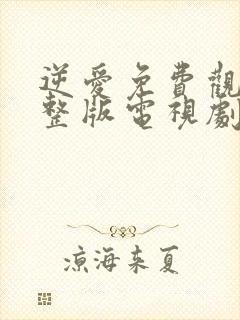 逆愛免費觀
整版電視劇
涼海来夏